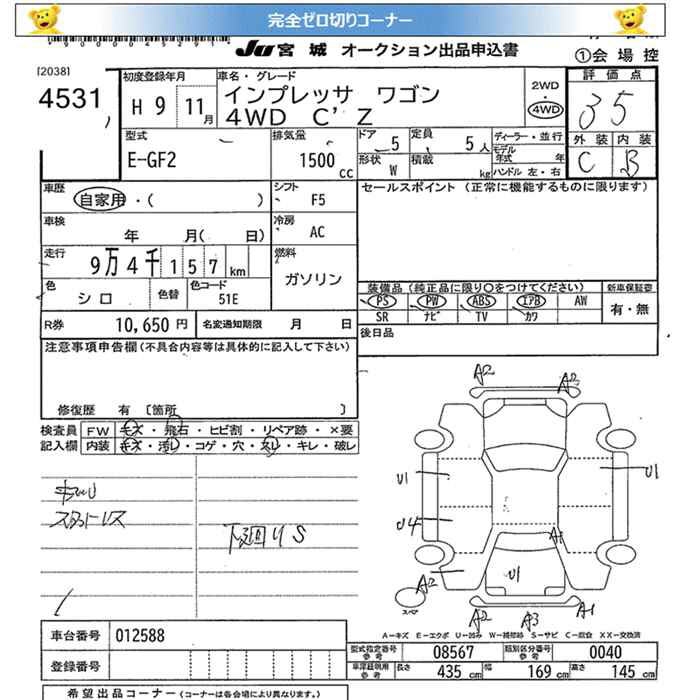 完全ゼロ切りコーナー
JU宮城 オークション出品申込書
①会場控
[2038]
4531
初度登録年月
H 9 11月
車名・グレード
インプレッサ ワゴン
4WD C' Z
2WD
・
4WD
評価点
35
外装 内装
C B
型式
E-GF2
排気量
1500 CC
ドア 5
形状 W
定員 5人
積載 kg
ディーラー・並行
モデル年式 年
ハンドル 左・右
車歴
自家用・( )
シフト F5
セールスポイント (正常に機能するものに限ります)
車検
年 月( 日)
冷房 AC
走行
9万4千157km
燃料
ガソリン
色
シロ
色替
色コード
51E
装備品(純正品に限り○をつけてください)
新車保証書
PS PW ABS エアB AW
有・無
SR ナビ TV カワ
R券 10,650円
名変通知期限 月 日
後日品
注意事項申告欄(不具合内容等は具体的に記入して下さい)
修復歴 有 [箇所 ]
検査員 FW キズ・飛石・ヒビ割・リペア跡・×要
記入欄 内装 キズ・汚レ・コゲ・穴・スレ・キレ・破レ
スタットレス
下廻りS
A2 A2
U1 U1
U4
A1
A2 U1
スペア
A2 A3 A1
A−キズ E−エクボ U−凹み W−補修跡 S−サビ C−腐食 XX−交換済
車台番号 012588
型式指定番号 参考 08567
類別区分番号 参考 0040
登録番号
車庫証明用 参考 長さ 435 cm 幅 169 cm 高さ 145 cm
希望出品コーナー(コーナーは各会場により異なります。)